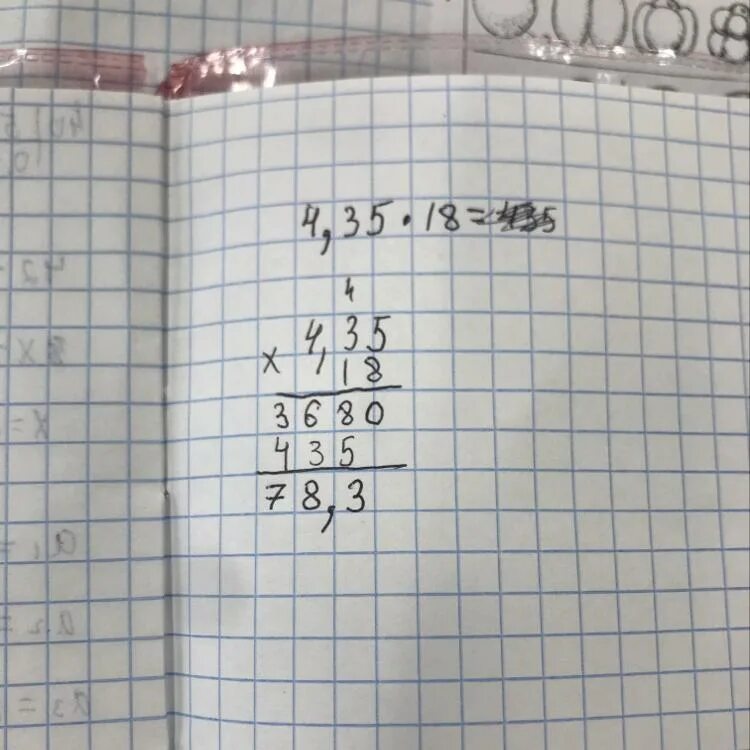 4,35 · 18 =
4
4,35
× 18
3680
435
78,3